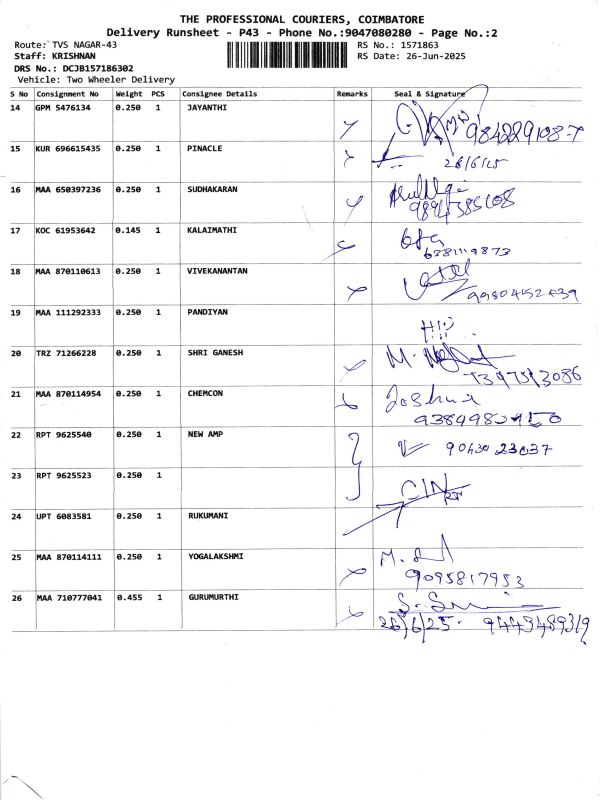 THE PROFESSIONAL COURIERS, COIMBATORE
Delivery Runsheet - P43 - Phone No.:9047080280 - Page No.:2
Route: TVS NAGAR-43 RS No.: 1571863
Staff: KRISHNAN RS Date: 26-Jun-2025
DRS No.: DCJB157186302
Vehicle: Two Wheeler Delivery
S No Consignment No Weight PCS Consignee Details Remarks Seal & Signature
14 GPM 5476134 0.250 1 JAYANTHI
15 KUR 696615435 0.250 1 PINACLE
26/6/25
16 MAA 650397236 0.250 1 SUDHAKARAN
17 KOC 61953642 0.145 1 KALAIMATHI
6381119873
18 MAA 870110613 0.250 1 VIVEKANANTAN
19 MAA 111292333 0.250 1 PANDIYAN
20 TRZ 71266228 0.250 1 SHRI GANESH
M.
21 MAA 870114954 0.250 1 CHEMCON
Joshua
22 RPT 9625540 0.250 1 NEW AMP
23 RPT 9625523 0.250 1
24 UPT 6083581 0.250 1 RUKUMANI
25 MAA 870114111 0.250 1 YOGALAKSHMI
M.
9095817953
26 MAA 710777041 0.455 1 GURUMURTHI
26/6/25. 9443489319